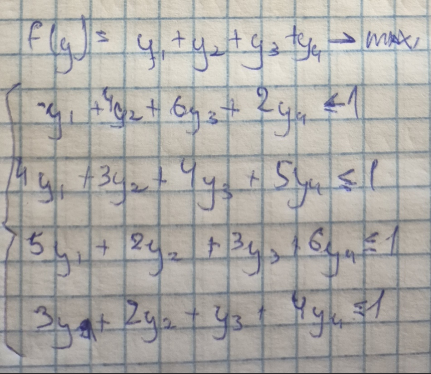 f(y) = y₁ + y₂ + y₃ + y₄ → max,
-y₁ + 4y₂ + 6y₃ + 2y₄ ≤ 1
4y₁ + 3y₂ + 4y₃ + 5y₄ ≤ 1
5y₁ + 2y₂ + 3y₃ + 6y₄ ≤ 1
3y₁ + 2y₂ + y₃ + 4y₄ ≤ 1